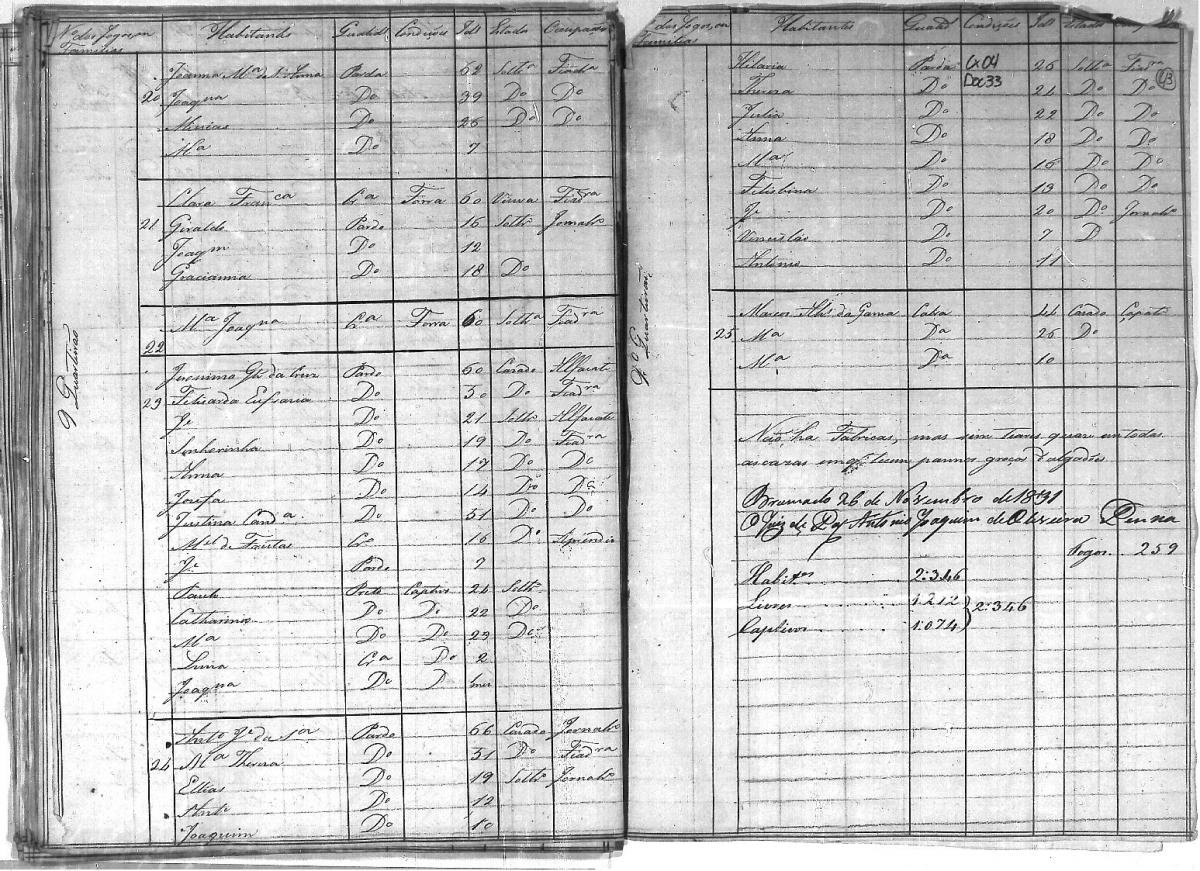 Nº dos Fogos, ou Familias Habitantes Qualid.e Condições Id.e Estado Ocupação
Joanna Mª de S. Anna Parda 62 Soltª Fiadª
20 Joaqna Dº 39 Dº Dº
Messias Dº 26 Dº Dº
Mª Dº 7
Clara Franca Crª Forra 60 Viuva Fiadra
21 Giraldo Pardo 16 Soltº Jornalrº
Joaqm Dº 12
Gracianna Dº 18 Dº
Mª Joaqna Crª Forra 60 Soltª Fiadra
22
Jeronimo da Cruz Pardo 60 Casado Alfaiate
23 Felisarda Eufrasia Dº 50 Dº Fiadra
Je Dº 21 Soltº Alfaiate
Senhorinha Dº 19 Dº Fiadra
Anna Dº 17 Dº Dº
Josefa Dº 14 Dº Dº
Justina Candª Dº 31 Dº Dº
Mel de Freitas Crº 16 Dº Aprendis
Je Pardo 7
Paulo Preto Captivo 24 Soltº
Catharina Dº Dº 22 Dº
Mª Dº Dº 29 Dº
Luna Crª Dº 2
Joaqna Dº D
Antº Je da Sª Pardo 66 Casado Jornalrº
24 Mª Theresa Dº 51 Dº Fiadra
Ellias Dº 19 Soltº Jornalrº
Antº Dº 12
Joaquim Dº 10
9 Quarteirão
Nº dos Fogos, ou Familias Habitantes Qualid Condições Id.e Estado
Hilaria Parda 26 Soltª Fiadra
Cx 04
Doc 33
43
Theresa Dº 24 Dº Dº
Julia Dº 22 Dº Dº
Anna Dº 18 Dº Dº
Mª Dº 16 Dº Dº
Felisbina Dº 13 Dº Dº
Je Dº 20 Dº Jornalrº
Vencislão Dº 7 D
Antonio Dº 11
Marcos da Gama Cabra 44 Casado Çapatº
25 Mª Dª 26 Dº
Mª Dª 10
9º Quarteirão
Não ha Fabricas, mas sim Tiares quazi em todas
as cazas em q' tecem pannos groços d'algodão
Brumado 26 de Novembro de 1831
O Juiz de Paz Antonio Joaquim de Oliveira Penna
Fogos... 259
Habitºs 2:346
Livres 1.272
Captivos 1.074 } 2:346